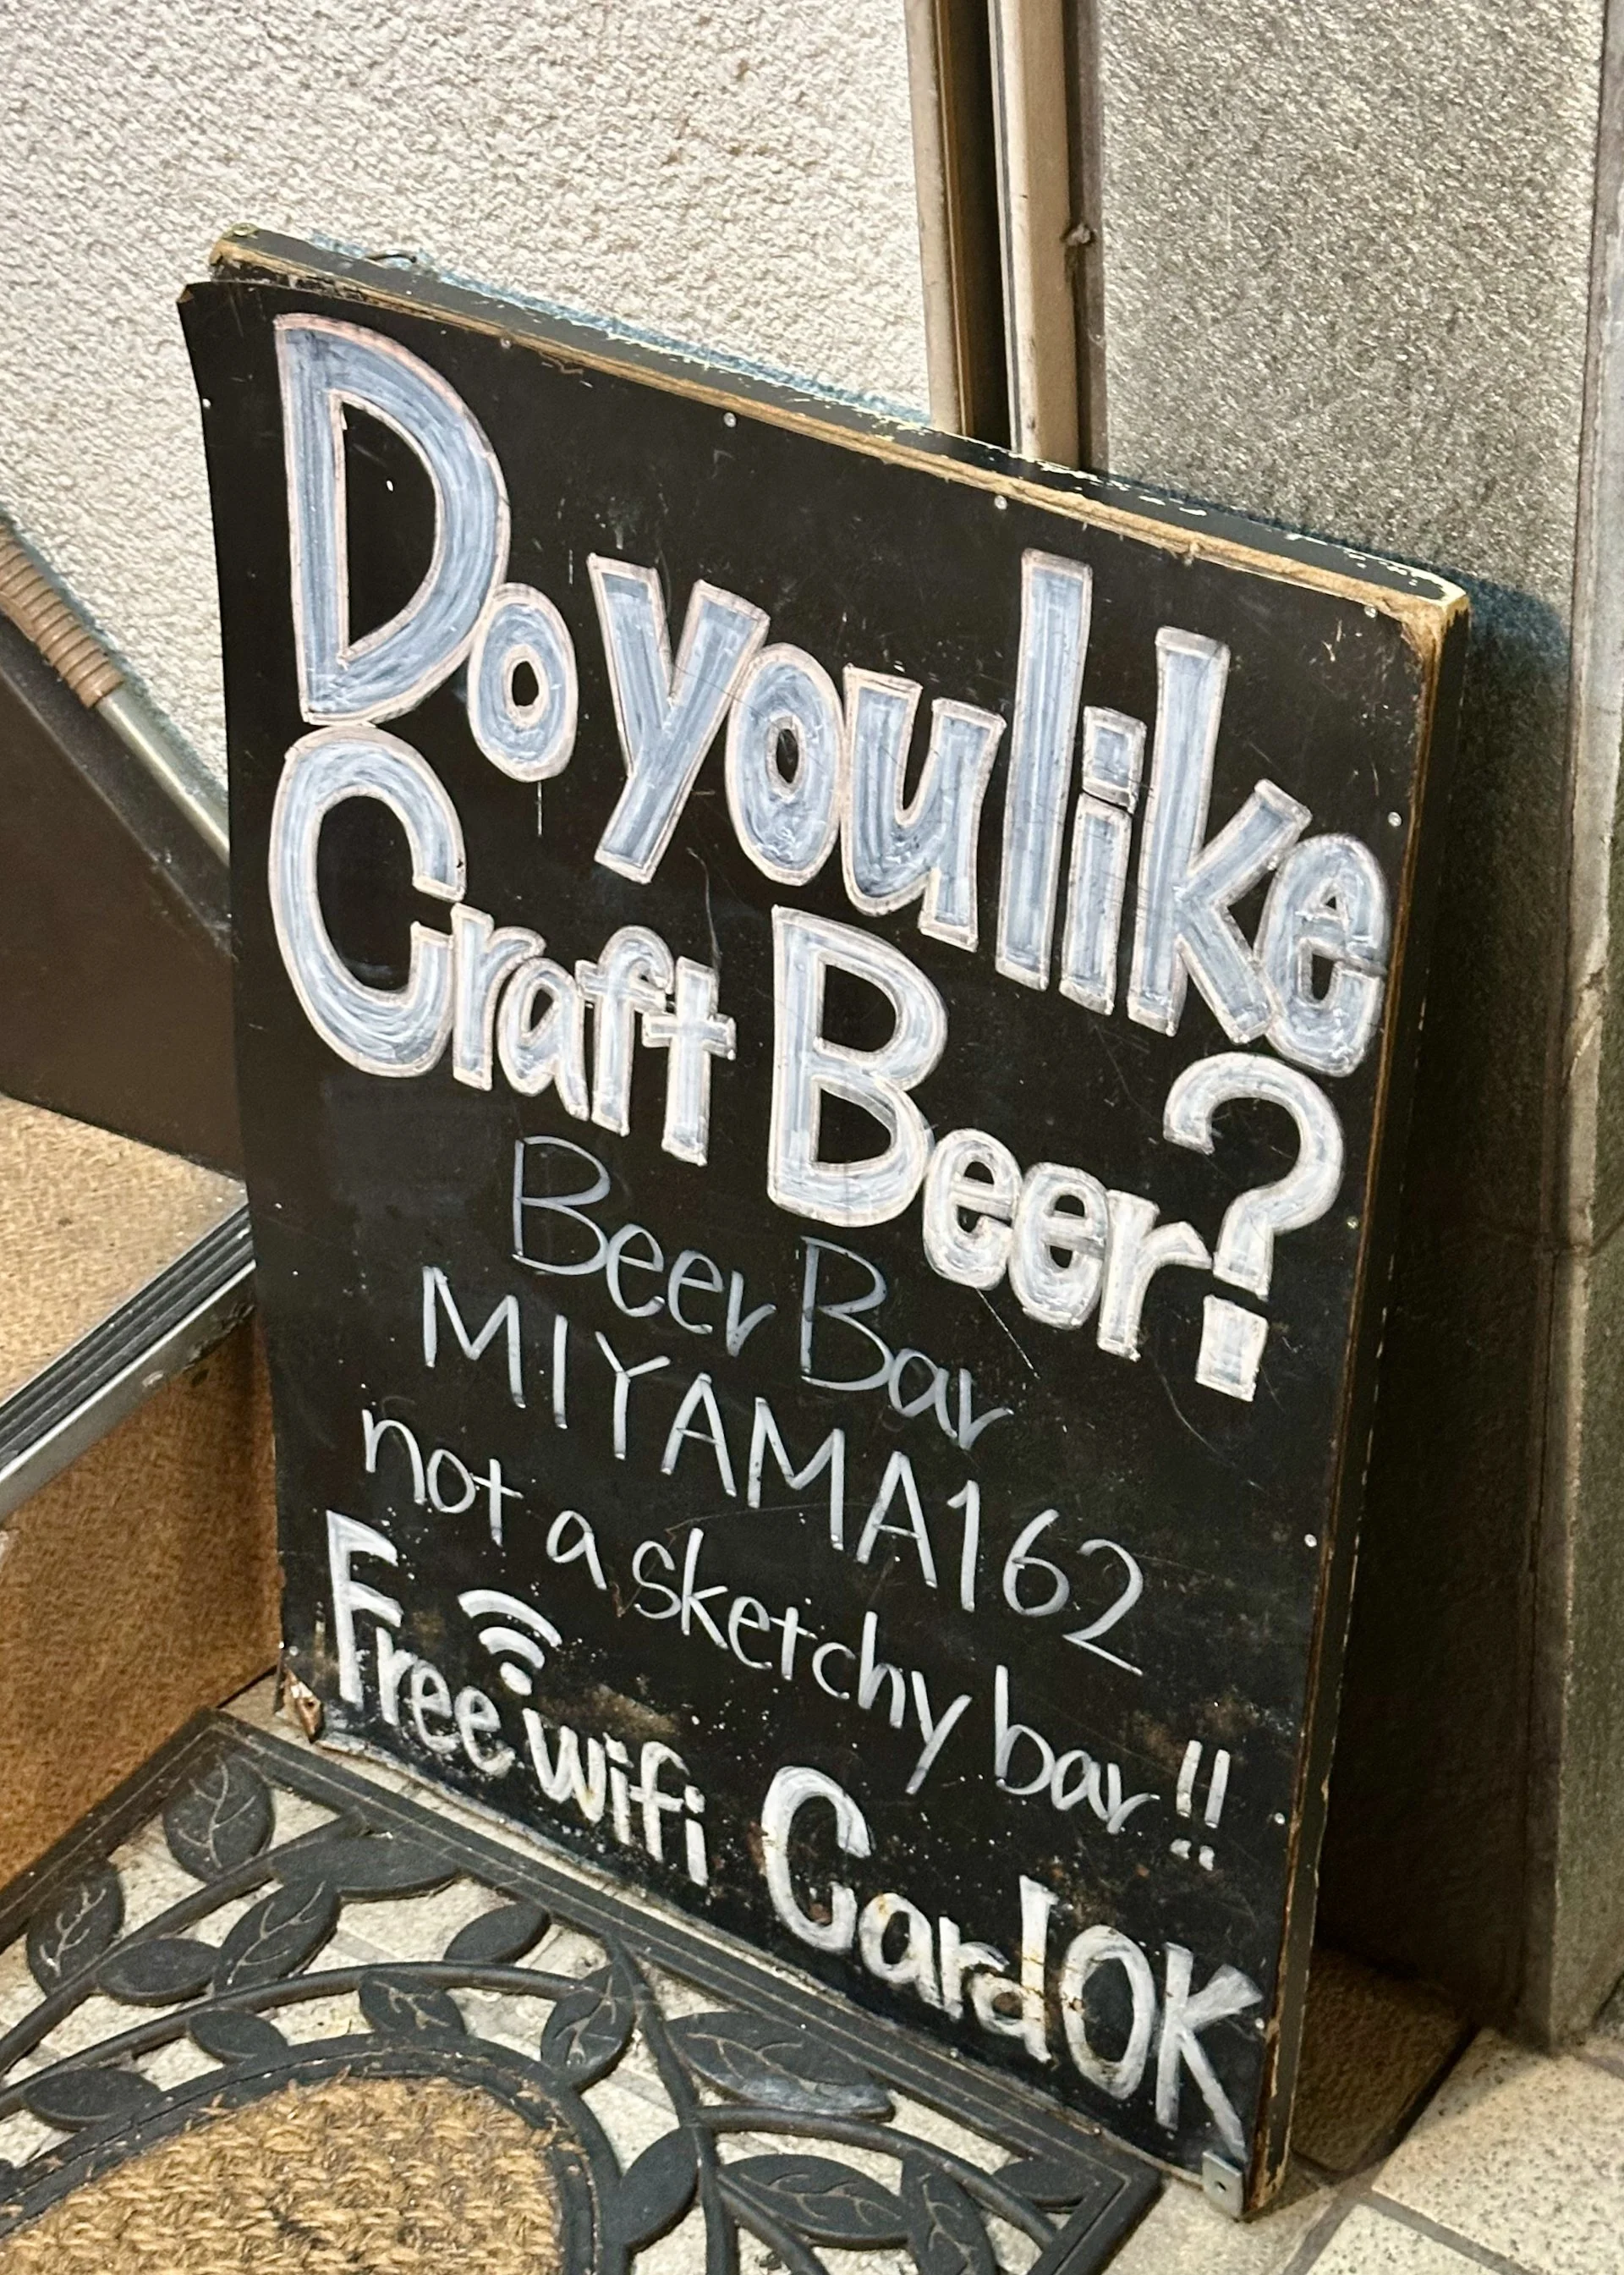 Do you like
Craft Beer?
Beer Bar
MIYAMA162
not a sketchy bar!!
Free wifi Card OK